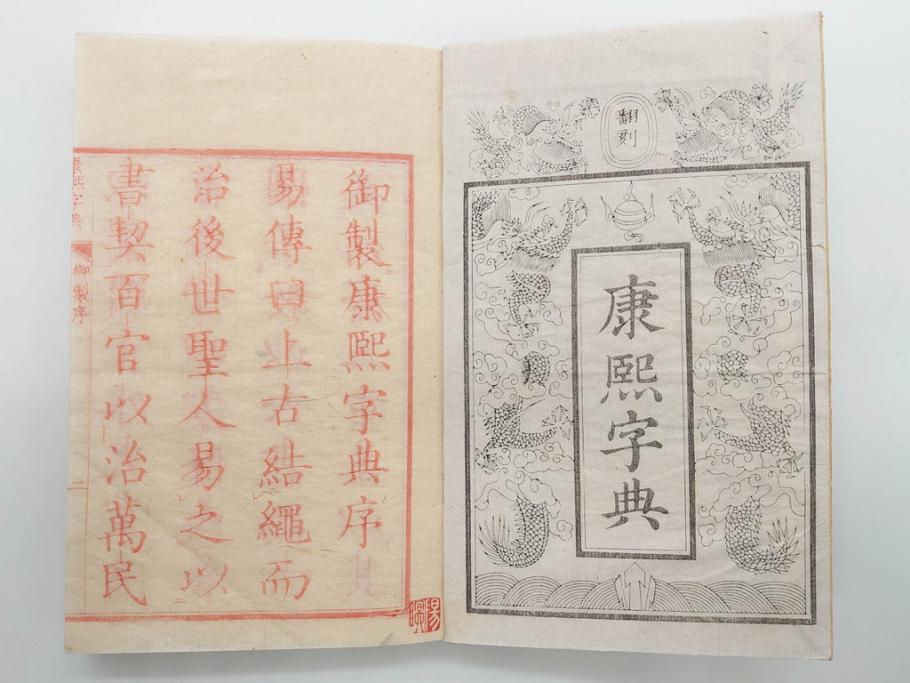 翻刻
康熙字典
御製康熙字典序
易傳曰上古結繩而
治後世聖人易之以
書契百官以治萬民
康熙字典
御製序
二